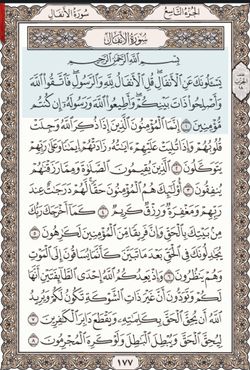 سُورَةُ الأَنفَالِ
الجُزْءُ التَّاسِعُ
سُورَةُ الأَنفَالِ
بِسْمِ اللَّهِ الرَّحْمَٰنِ الرَّحِيمِ
يَسْـَٔلُونَكَ عَنِ الْأَنفَالِ ۖ قُلِ الْأَنفَالُ لِلَّهِ وَالرَّسُولِ ۖ فَاتَّقُوا اللَّهَ
وَأَصْلِحُوا ذَاتَ بَيْنِكُمْ ۖ وَأَطِيعُوا اللَّهَ وَرَسُولَهُ إِن كُنتُم
مُّؤْمِنِينَ ١ إِنَّمَا الْمُؤْمِنُونَ الَّذِينَ إِذَا ذُكِرَ اللَّهُ وَجِلَتْ
قُلُوبُهُمْ وَإِذَا تُلِيَتْ عَلَيْهِمْ ءَايَاتُهُ زَادَتْهُمْ إِيمَانًا وَعَلَىٰ رَبِّهِمْ
يَتَوَكَّلُونَ ٢ الَّذِينَ يُقِيمُونَ الصَّلَوٰةَ وَمِمَّا رَزَقْنَاهُمْ
يُنفِقُونَ ٣ أُولَٰئِكَ هُمُ الْمُؤْمِنُونَ حَقًّا ۚ لَّهُمْ دَرَجَاتٌ عِندَ
رَبِّهِمْ وَمَغْفِرَةٌ وَرِزْقٌ كَرِيمٌ ٤ كَمَا أَخْرَجَكَ رَبُّكَ
مِن بَيْتِكَ بِالْحَقِّ وَإِنَّ فَرِيقًا مِّنَ الْمُؤْمِنِينَ لَكَارِهُونَ ٥
يُجَادِلُونَكَ فِي الْحَقِّ بَعْدَ مَا تَبَيَّنَ كَأَنَّمَا يُسَاقُونَ إِلَى الْمَوْتِ
وَهُمْ يَنظُرُونَ ٦ وَإِذْ يَعِدُكُمُ اللَّهُ إِحْدَى الطَّائِفَتَيْنِ أَنَّهَا
لَكُمْ وَتَوَدُّونَ أَنَّ غَيْرَ ذَاتِ الشَّوْكَةِ تَكُونُ لَكُمْ وَيُرِيدُ
اللَّهُ أَن يُحِقَّ الْحَقَّ بِكَلِمَاتِهِ وَيَقْطَعَ دَابِرَ الْكَافِرِينَ ٧
لِيُحِقَّ الْحَقَّ وَيُبْطِلَ الْبَاطِلَ وَلَوْ كَرِهَ الْمُجْرِمُونَ ٨
١٧٧